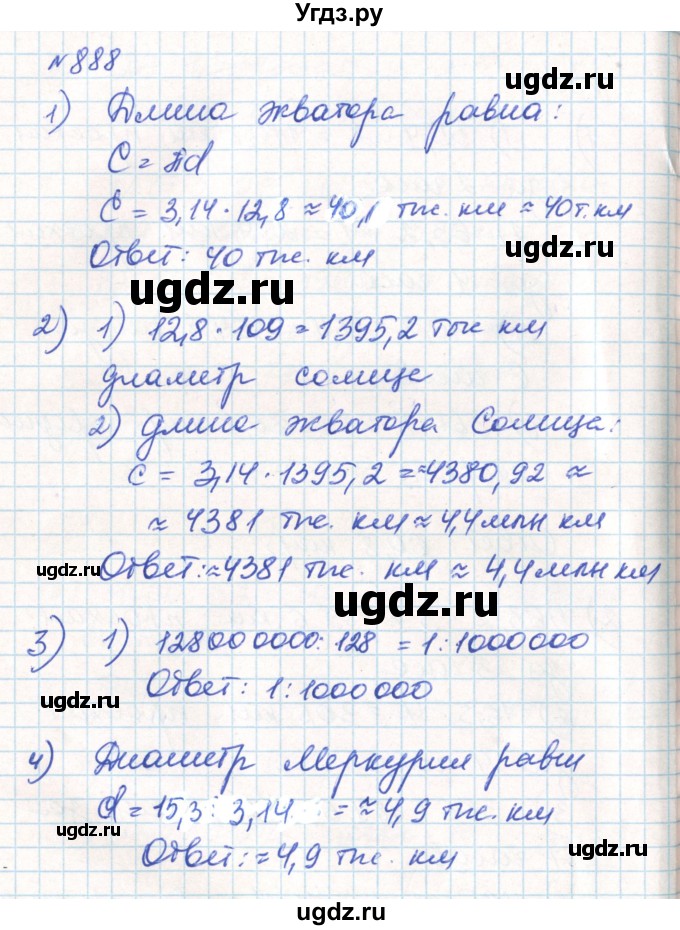 Угдз.ру
№888
ugdz.ru
1) Длина экватора равна:
C = πd
C = 3,14 · 12,8 ≈ 40,1 тыс. км ≈ 40 т. км
Ответ: 40 тыс. км
ugdz.ru
ugdz.ru
2) 1) 12,8 · 109 = 1395,2 тыс км
диаметр солнце
2) длина экватора Солнца:
C = 3,14 · 1395,2 = ≈4380,92 ≈
≈ 4381 тыс. км ≈ 4,4 млн км
ugdz.ru
Ответ: ≈4381 тыс. км ≈ 4,4 млн км
ugdz.ru
3) 1) 12800 00000 : 128 = 1 : 1000000
Ответ: 1 : 1000 000
ugdz.ru
4) Диаметр Меркурия равен
d = 15,3 : 3,14 = ≈ 4,9 тыс. км
ugdz.ru
Ответ: ≈ 4,9 тыс. км
ugdz.ru
ugdz.ru